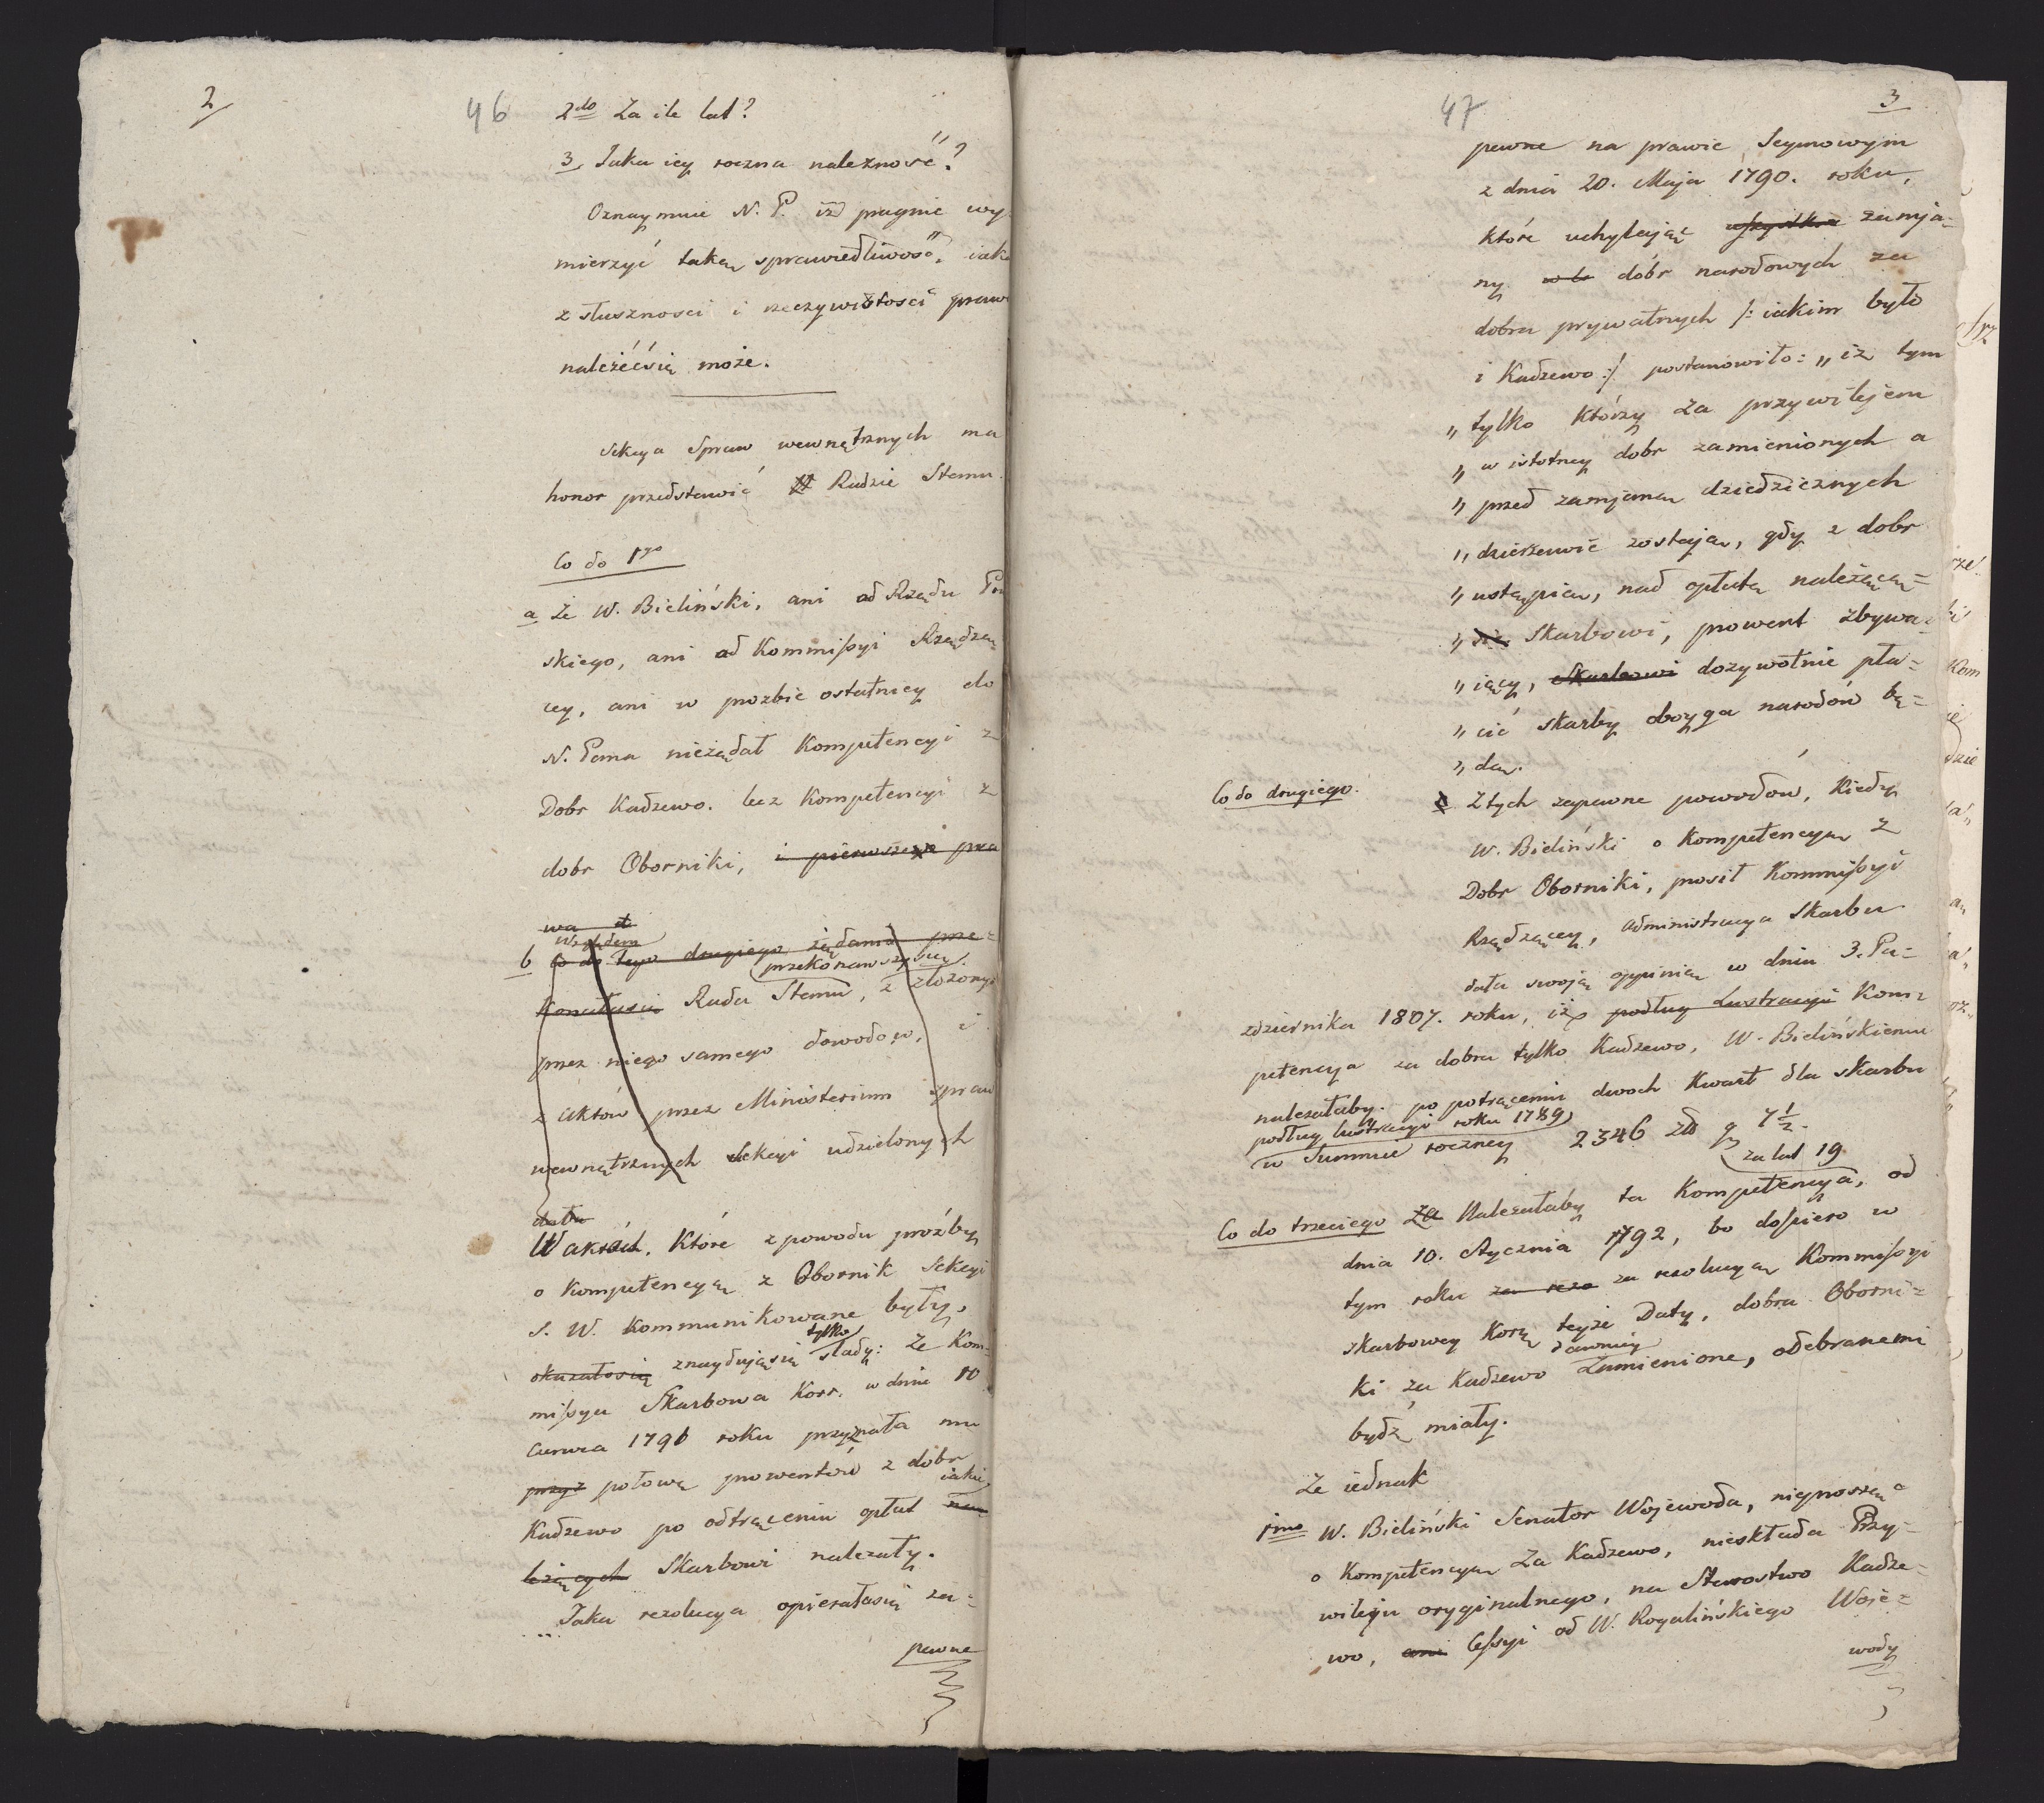 2
46
2do Za ile lat?
3, Jaka iey roczna należność?
Oznaymuie N. P. iż pragnie wy
mierzyć taką sprawiedliwość, iak
z słuszności i rzeczywistości praw
należéćsię może.
Sekcya Spraw wewnętrznych ma
honor przedstawić Radzie Stanu.
Co do 1go
a Że W. Bieliński, ani od Rządu Pru
skiego, ani od Kommissyi Rządzą
cey, ani w prozbie ostatniey do
N. Pana nieżądał Kompetencyi z
Dobr Kadzewo. lecz Kompetencyi z
dobr Oborniki, i pierwsze pra
wa
względem
b Co do tego drugiego żądania prze=
przekonawszy się
konałasię Rada Stanu, z złożonych
przez niego samego dowodow, i
z Aktów przez Ministerium spraw
wewnętrznych Sekcyi udzielonych
data
W aktach, które z powodu proźby
o Kompetencyą z Obornik Sekcyi
S. W. Kommunikowane były,
tylko
okazałosię znayduiąsię ślady: że Kom=
missya Skarbowa Kor. w dniu 10
Czerwca 1791 roku przyznała mu
przyz połowę prowentów z dóbr
iakie
Kadzewo po odtrąceniu opłat na
leżących Skarbowi należały.
Jaka rezolucya opierałasię za=
pewne
47
3
pewne na prawie Seymowym
z dnia 20. Maja 1790. roku,
które uchylaiąc wszystkie zamja=
ny dóbr narodowych za
dobra prywatnych /: iakim było
i Kadzewo :/ postanowiło: „iż tym
„tylko którzy za przywilejem
„w istotney dobr zamienionych a
„przed zamjaną dziedzicznych
„dzierzawie zostają, gdy z dobr
„ustąpią, nad opłatę należącą=
„się Skarbowi, prowent zbywa=
„iący, Skarbowi dozywotnie pła=
„cić skarby oboyga narodów bę=
„dą.
Co do drugiego.
Z tych zapewne powodów, kiedy
W. Bieliński o Kompetencyą z
Dobr Oborniki, prosił Kommissyi
Rządzącey, Administracya Skarbu
dała swoją opinią w dniu 3. Pa=
zdziernika 1807. roku, iż podług Lustracyi Kom=
petencya za dobra tylko Kadzewo, W. Bielińskiemu
należałaby. po potrąceniu dwoch kwart dla skarbu
podług lustracyi roku 1789
w Summie roczney 2346 zł g 7 1/2.
za lat 19
Co do trzeciego Za Należałaby ta Kompetencya, od
dnia 10. Stycznia 1792, bo dopiero w
tym roku za reze za rezolucyą Kommissyi
skarbowey Kory teyże Daty, dobra Oborni=
dawniey
ki za Kadzewo Zamienione, odebranemi
bydź miały.
Że iednak
1mo W. Bieliński Senator Wojewoda, nieprosząc
o Kompetencyą Za Kadzewo, nieskłada Przy=
wileju oryginalnego, na Starostwo Kadze=
wo, ani Cessyi od W. Rogalińskiego Woie=
wody